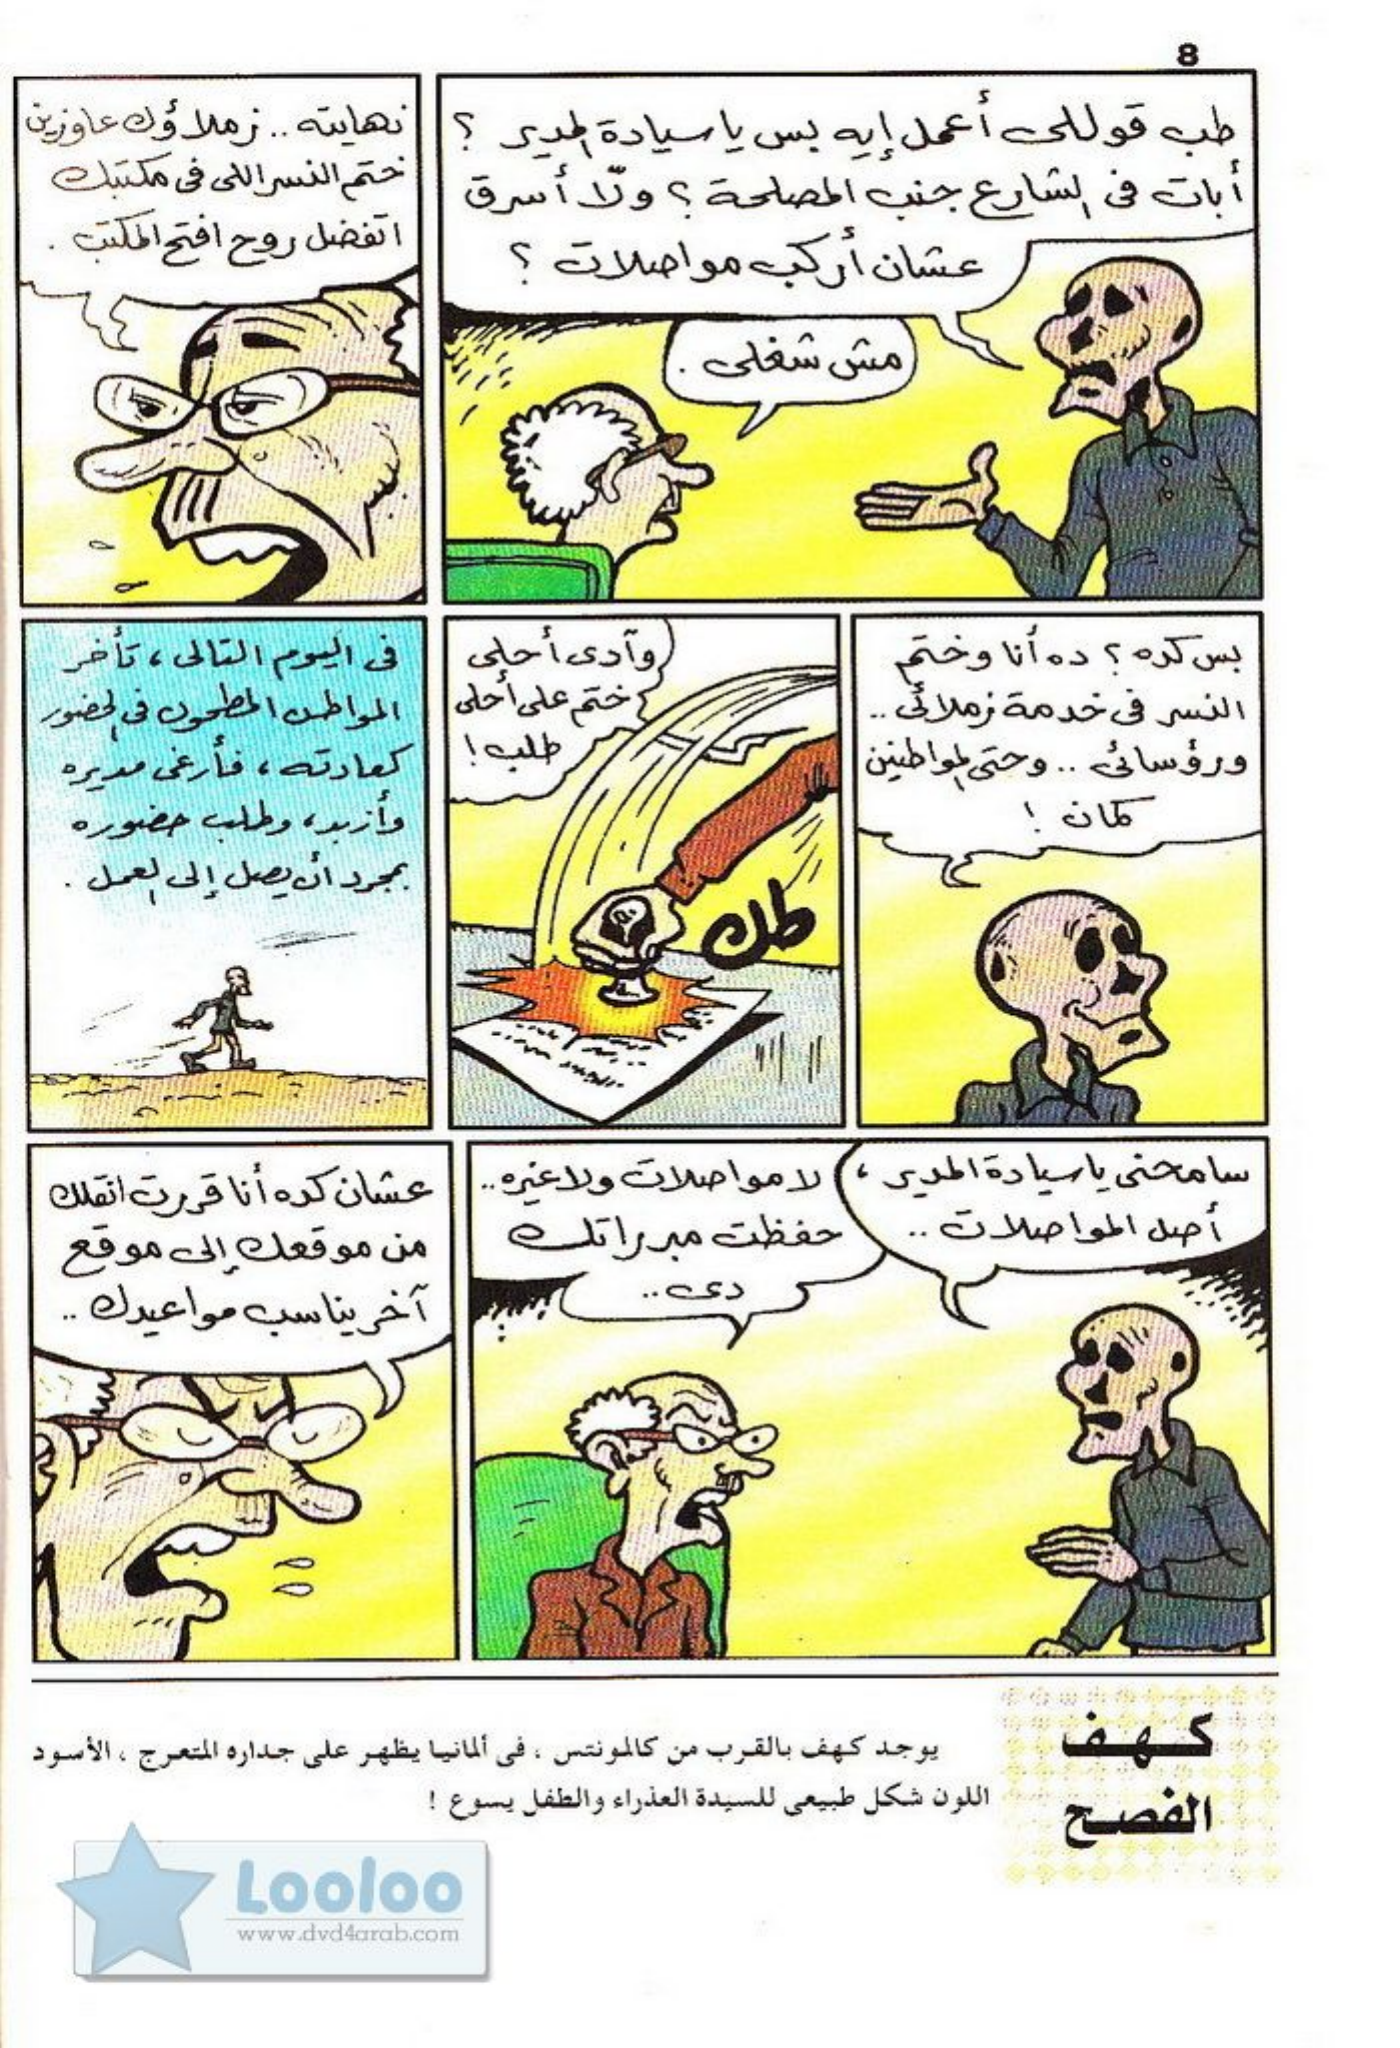 8
طب قوللى أعمل إيه بس يا سيادة المدير ؟
أبات فى الشارع جنب المصلحة ؟ ولّا أسرق
عشان أركب مواصلات ؟
مش شغلى .
نهايته .. زملاؤك عاوزين
ختم النسر اللى فى مكتبك
اتفضل روح افتح المكتب .
بس كده ؟ ده أنا وختم
النسر فى خدمة زملائى ..
ورؤسائى .. وحتى المواطنين
كمان !
وآدى أحلى
ختم على أحلى
طلب !
طك
فى اليوم التالى ، تأخر
المواطن المطحون فى الحضور
كعادته ، فأرغى مديره
وأزبد ، وطلب حضوره
بمجرد أن يصل إلى العمل .
سامحنى يا سيادة المدير ،
أصل المواصلات ..
لا مواصلات ولا غيره ..
حفظت مبرراتك
دى ..
عشان كده أنا قررت انقلك
من موقعك إلى موقع
آخر يناسب مواعيدك ..
كهف
الفصح
يوجد كهف بالقرب من كالمونتس ، فى ألمانيا يظهر على جداره المتعرج ، الأسود
اللون شكل طبيعى للسيدة العذراء والطفل يسوع !
Looloo
www.dvd4arab.com